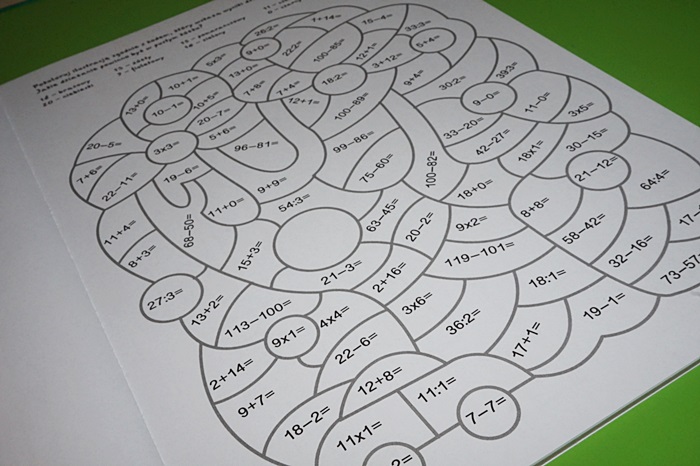 7+14=
15−4=
33:3=
26:2=
22:2=
5x3=
9+0=
100−85=
12+1=
5+4=
3+12=
39:3=
10+1=
13+0=
7+8=
7+4=
18:2=
9+4=
30:2=
13+0=
10−1=
10+5=
12+1=
100−89=
9−0=
11−0=
3x5=
20−7=
5+6=
33−20=
20−5=
3x3=
96−81=
99−86=
42−27=
48x1=
30−15=
7+6=
22−11=
19−6=
75−60=
100−82=
21−12=
64:4=
9+9=
18+0=
11+0=
54:3=
63−45=
8+8=
11+4=
8+3=
68−50=
20−2=
9x2=
58−42=
15+3=
119−101=
32−16=
21−3=
2+16=
73−57=
27:3=
13+2=
113−100=
4x4=
3x6=
18:1=
9x1=
36:2=
19−1=
22−6=
17+1=
2+14=
12+8=
11:1=
9+7=
18−2=
7−7=
11x1=